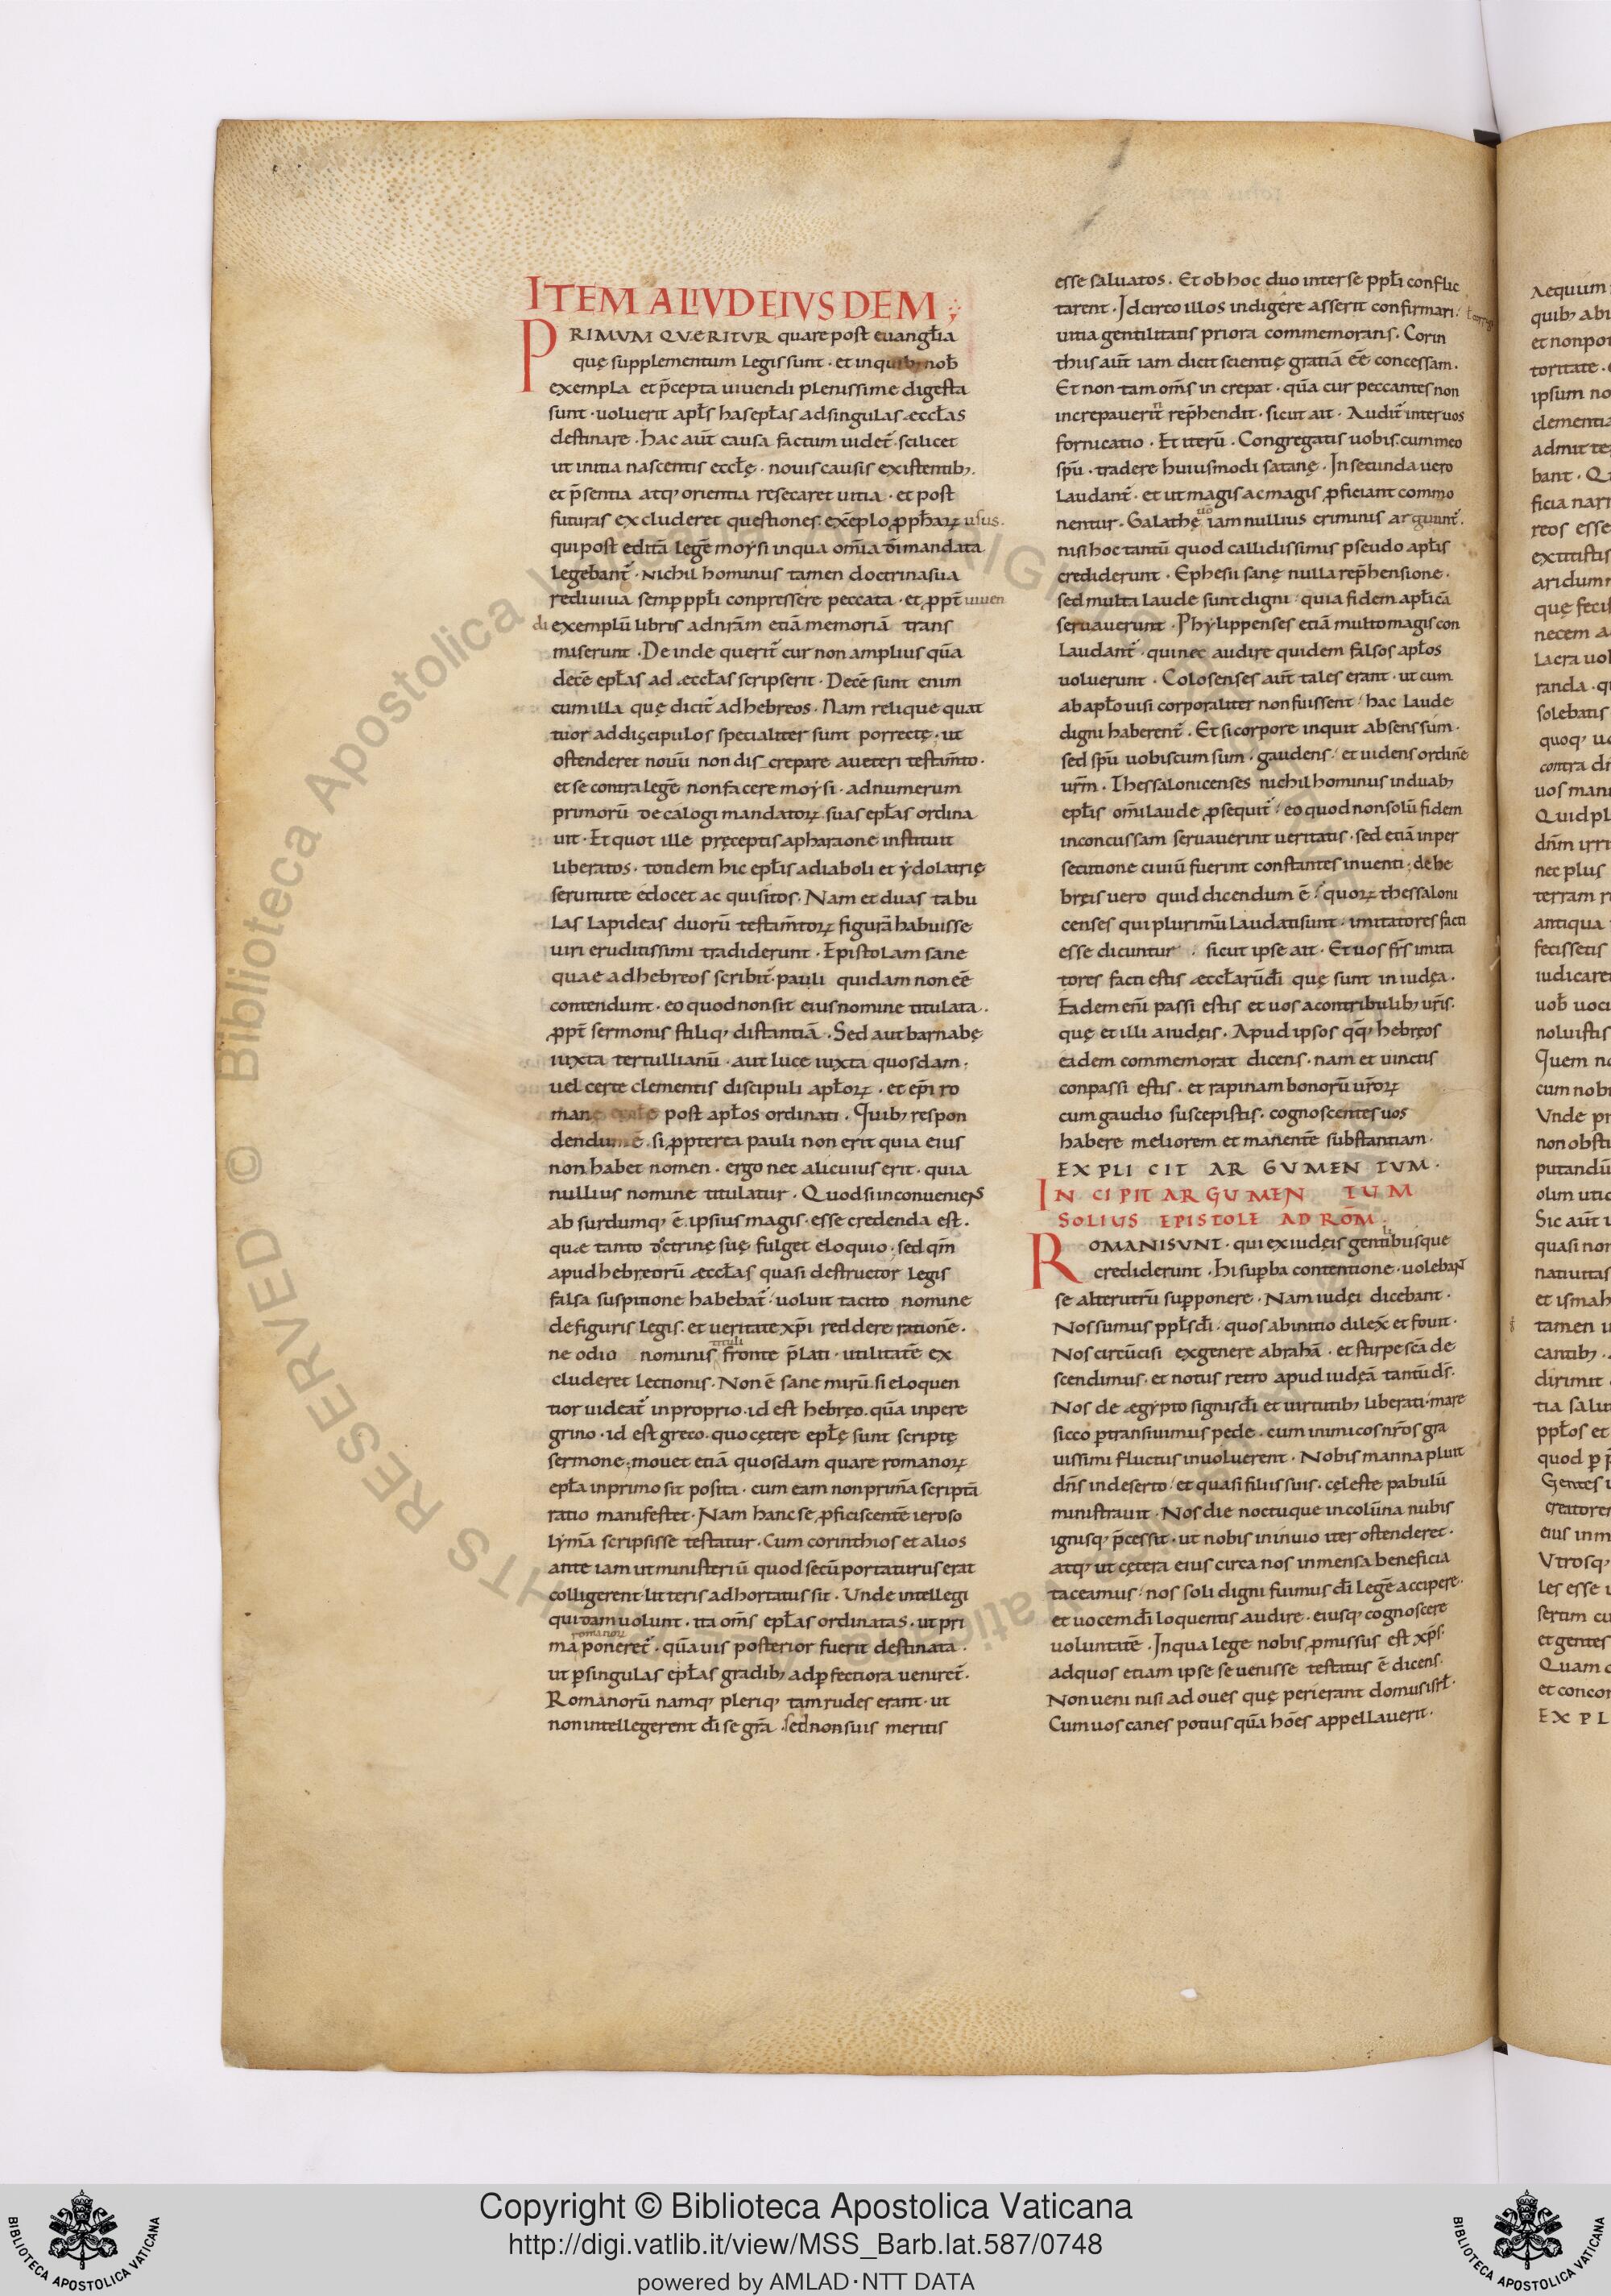 ITEM ALIVD EIVSDEM
PRIMVM QVERITVR quare post euangl̄ia
quę supplementum legis sunt · et in quib; nob̄
exempla et p̄cepta uiuendi plenissime digesta
sunt · voluerit apl̄s has epl̄as ad singulas æccl̄as
destinare · hac aut̄ causa factum uidet̄ · scilicet
ut initia nascentis eccl̄ę · nouis causis existentib; ·
et p̄sentia atq; orientia resecaret uitia · et post
futuras excluderet questiones · exēplo ꝓph̄aꝝ usus ·
qui post editā legē moẏsi in qua om̄ia d̄i mandata
legebant̄ · nichilhominus tamen doctrina sua
rediuiua semꝑ ppl̄i conpressere peccata · et ꝓpt̄ uiuen
di exemplū libris ad nr̄am etiā memoriā trans
miserunt · Deinde querit̄ cur non amplius quā
decē epl̄as ad æccl̄as scripserit · Decē sunt enim
cum illa quę dicit̄ ad hebreos · Nam relique quat
tuor ad discipulos specialiter sunt porrectę · ut
ostenderet nouū non discrepare a ueteri testam̄to ·
et se contra legē non facere moẏsi · ad numerum
primorū decalogi mandatoꝝ suas epl̄as ordina
uit · Et quot ille pręceptis a pharaone instituit
liberatos · totidem hic epl̄is a diaboli et ẏdolatrię
seruitute edocet acquisitos · Nam et duas tabu
las lapideas duorū testam̄toꝝ figurā habuisse
uiri eruditissimi tradiderunt · Epistolam sane
quae ad hebreos scribit̄ · pauli quidam non eē
contendunt · eo quod non sit eius nomine titulata ·
ꝓpt̄ sermonis stiliq; distantiā · Sed aut barnabę
iuxta tertullianū · aut luce iuxta quosdam ·
uel certe clementis discipuli apl̄oꝝ · et ep̄i ro
manę post apl̄os ordinati · Quib; respon
dendum ē · si ꝓpterea pauli non erit quia eius
non habet nomen · ergo nec alicuius erit · quia
nullius nomine titulatur · Quod si inconueniens
absurdumq; ē · ipsius magis · esse credenda est ·
quæ tanto doctrinę suę fulget eloquio · sed qm̄
apud hebreorū æccl̄as quasi destructor legis
falsa suspitione habebat̄ · uoluit tacito nomine
de figuris legis · et ueritate xp̄i reddere rationē ·
tituli
ne odio nominis fronte p̄lati · utilitatē ex
cluderet lectionis · Non ē sane mirū · si eloquen
tior uideat̄ in proprio · id est hebręo · quā in pere
grino · id est greco · quo cętere epl̄ę sunt scriptę
sermone · mouet etiā quosdam quare romanoꝝ
epl̄a in primo sit posita · cum eam non primā scriptā
ratio manifestet · Nam hanc se ꝓficiscentē ieroso
lẏmā scripsisse testatur · Cum corinthios et alios
ante iam ut ministeriū quod secū portaturus erat
colligerent litteris adhortatus sit · Unde intellegi
quidam uolunt · ita om̄s epl̄as ordinatas · ut pri
romanoꝝ
ma poneret̄ · quāuis posterior fuerit destinata ·
ut ꝑ singulas epl̄as gradib; ad ꝑfectiora ueniret̄ ·
Romanorū namq; pleriq; tam rudes erant · ut
non intellegerent d̄i se grā · sed non suis meritis
esse saluatos · Et ob hoc duo inter se ppl̄i conflic
tarent · Idcirco illos indigere asserit confirmari ·
uitia gentilitatis priora commemorans · Corin
thus aut̄ iam dicit scientię gratiā eē concessam ·
Et non tam om̄s increpat · quā cur peccantes non
increpauerit̄ rep̄hendit · sicut ait · Audit̄ inter uos
fornicatio · Et iterū · Congregatis uobis · cum meo
sp̄u · tradere huiusmodi satanę · In secunda uero
laudant̄ · et ut magis ac magis ꝓficiant commo
uō
nentur · Galathę iam nullius criminis arguunt̄ ·
nisi hoc tantū quod callidissimis pseudo apl̄is
crediderunt · Ephesii sanę nulla rep̄hensione ·
sed multa laude sunt digni · quia fidem apl̄icā
seruauerunt · Phẏlippenses etiā multo magis con
laudant̄ · qui nec audire quidem falsos apl̄os
uoluerunt · Colosenses aut̄ tales erant · ut cum
ab apl̄o uisi corporaliter non fuissent · hac laude
digni haberent̄ · Et si corpore inquit absens sum ·
sed sp̄u uobiscum sum · gaudens · et uidens ordinē
ur̄m · Thessalonicenses nichilhominus in duab;
epl̄is om̄i laude ꝓsequit̄ · eo quod non solū fidem
inconcussam seruauerint ueritatis · sed etiā in per
secutione ciuiū fuerint constantes inuenti · de he
bręis uero quid dicendum ē · quoꝝ thessaloni
censes qui plurimū laudati sunt · imitatores facti
esse dicuntur · sicut ipse ait · Et uos fr̄s imita
tores facti estis æccl̄arū d̄i quę sunt in iudęa ·
Eadem enī passi estis et uos a contribulib; ur̄is ·
quę et illi a iudęis · Apud ipsos q̄q; hebręos
eadem commemorat dicens · nam et uinctis
conpassi estis · et rapinam bonorū ur̄oꝝ
cum gaudio suscepistis · cognoscentes uos
habere meliorem et manentē substantiam ·
EXPLICIT ARGUMENTUM ·
INCIPIT ARGUMENTUM
SOLIUS EPISTOLE AD ROM̄ ·
ROMANI SUNT · qui ex iudęis gentibusque
crediderunt · hi suꝑba contentione · uolebant
se alterutrū supponere · Nam iudei dicebant ·
Nos sumus ppl̄s d̄i · quos ab initio dilex̄ et fouit ·
Nos circūcisi ex genere abrahā · et stirpe scā de
scendimus · et notus retro apud iudęā tantū d̄s ·
Nos de ægẏpto signis d̄i et uirtutib; liberati · mare
sicco ꝑtransiuimus pede · cum inimicos nr̄os gra
uissimi fluctus inuoluerent · Nobis manna pluit
dn̄s in deserto · et quasi filiis suis · cęleste pabulū
ministrauit · Nos die noctuque in colūna nubis
ignisq; p̄cessit · ut nobis in inuio iter ostenderet ·
atq; ut cętera eius circa nos inmensa beneficia
taceamus · nos soli digni fuimus d̄i legē accipere ·
et uocem d̄i loquentis audire · eiusq; cognoscere
uoluntatē · In qua lege nobis ꝓmissus est xp̄s ·
ad quos etiam ipse se uenisse testatus ē dicens ·
Non ueni nisi ad oues quę perierant domus isrl̄ ·
Cum uos canes potius quā hoēs appellauerit ·
Copyright © Biblioteca Apostolica Vaticana
http://digi.vatlib.it/view/MSS_Barb.lat.587/0748
powered by AMLAD·NTT DATA